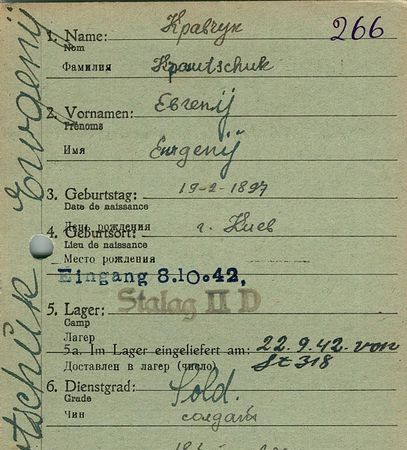 266
Кравчук
1. Name:
Nom
Фамилия Krautschuk
Евгениј
2. Vornamen:
Prénoms
Имя Ewgenij
3. Geburtstag: 19-2-1897
Date de naissance
День рождения г. Киев
4. Geburtsort:
Lieu de naissance
Место рождения
Eingang 8.10.42,
Stalag II D
5. Lager:
Camp
Лагерь
5a. Im Lager eingeliefert am: 22.9.42. von
Доставлен в лагерь (число) St 318
6. Dienstgrad: Sold.
Grade
Чин солдат
Ewgenij